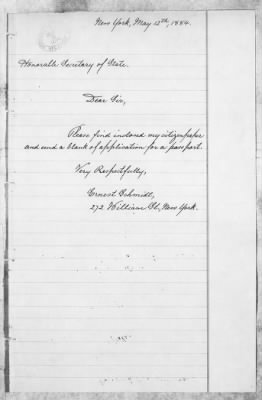 New York, May 12th, 1884.
Honorable Secretary of State.
Dear Sir,
Please find inclosed my citizenpaper
and send a blank of application for a passport.
Very Respectfully,
Ernest Schmidt,
272 William St., New York.